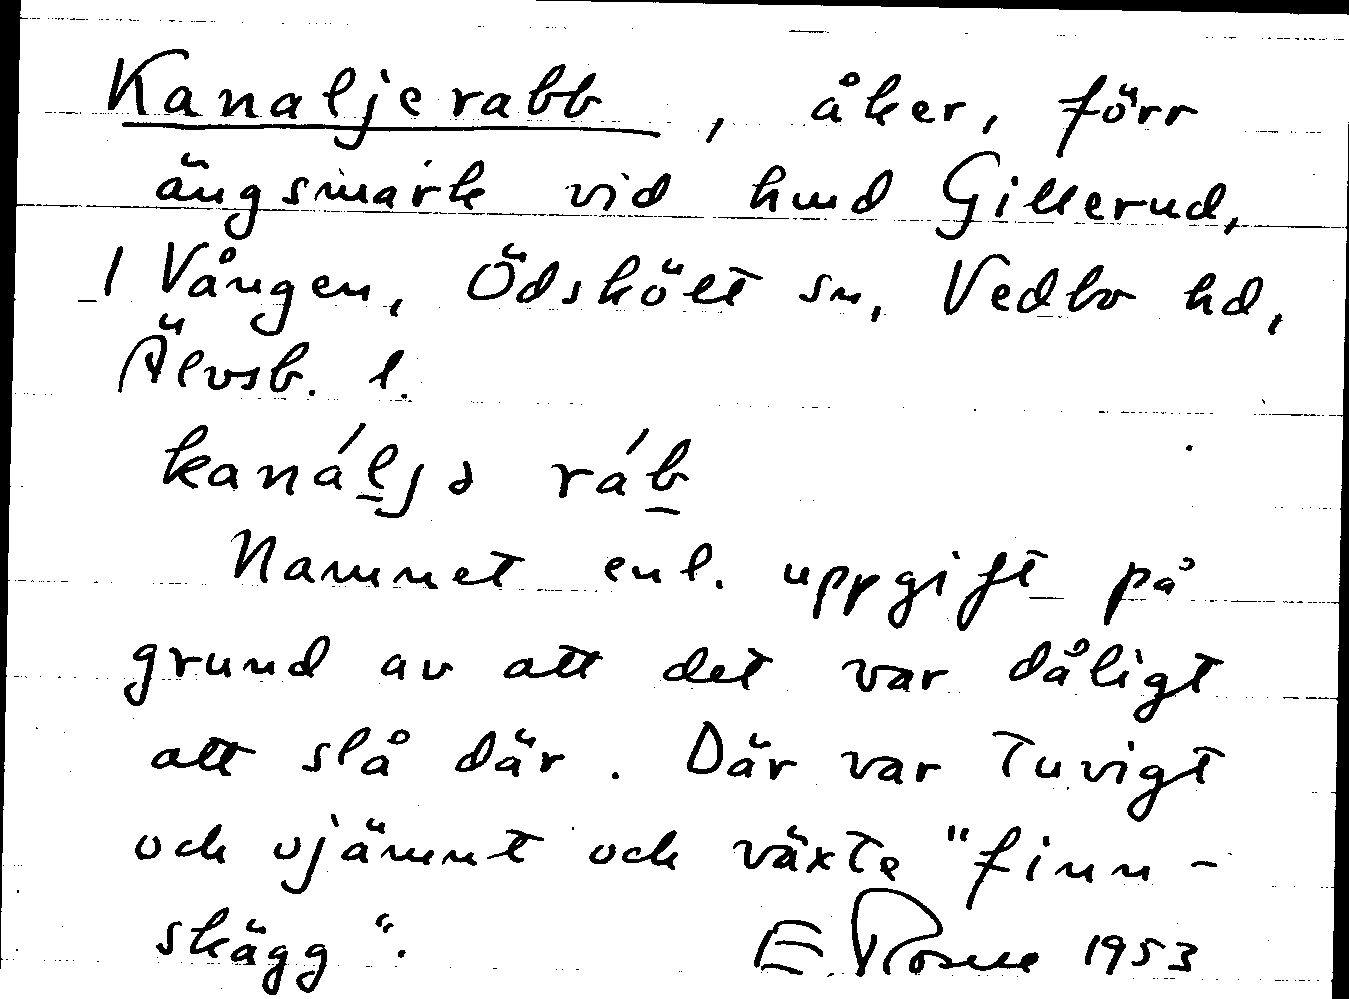 Kanaljerabb, åker, förr
ängsmark vid hmd Gillerud,
1 Vången, Ödskölt sn, Vedbo hd,
Älvsb. l.
kanáljə ráb
Namnet enl. uppgift på
grund av att det var dåligt
att slå där. Där var tuvigt
och ojämnt och växte "finn-
skägg".
E. 1953